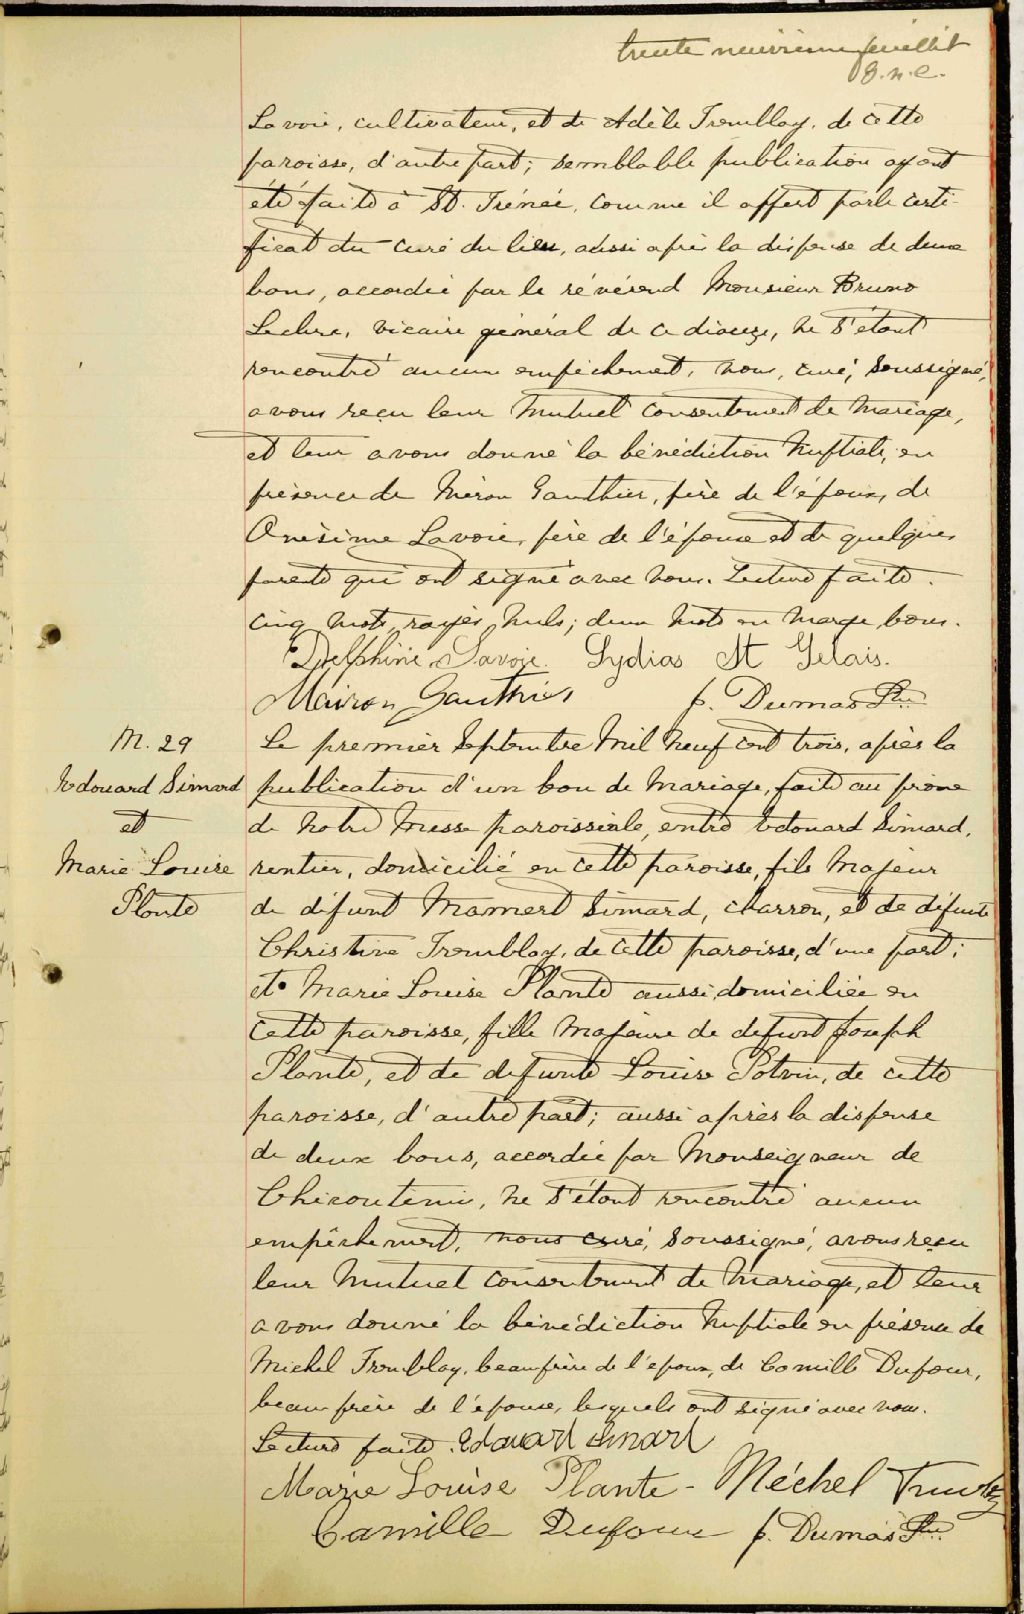 trente neuvième feuillet
J.N.C.
Lavoie, cultivateur, et de Adèle Tremblay, de cette
paroisse, d'autre part; semblable publication ayant
été faite à St. Irénée, comme il appert par le certi-
ficat du curé du lieu, aussi après la dispense de deux
bans, accordée par le révérend Monsieur Bruno
Leclerc, vicaire général de ce diocèse, ne s'étant
rencontré aucun empêchement, nous, curé, soussigné,
avons reçu leur mutuel consentement de mariage,
et leur avons donné la bénédiction nuptiale, en
présence de Méron Gauthier, père de l'époux, de
Onésime Lavoie, père de l'épouse et de quelques
parents qui ont signé avec nous. Lecture faite.
cinq mots rayés nuls; deux mots en marge bons.
Delphine Savoie. Lydias St Gelais.
Mairon Gauthier p. Dumas Ptre
M. 29
Edouard Simard
et
Marie Louise
Plante
Le premier Septembre mil neuf cent trois, après la
publication d'un ban de mariage, faite au prône
de notre messe paroissiale, entre Edouard Simard,
rentier, domicilié en cette paroisse, fils majeur
de défunt Mamert Simard, charron, et de défunte
Christine Tremblay, de cette paroisse, d'une part;
et Marie Louise Plante aussi domiciliée en
cette paroisse, fille majeure de defunt Joseph
Plante, et de defunte Louise Potvin, de cette
paroisse, d'autre part; aussi après la dispense
de deux bans, accordée par Monseigneur de
Chicoutimi, ne s'étant rencontré aucun
empêchement, nous curé, soussigné, avons reçu
leur mutuel consentement de mariage, et leur
avons donné la bénédiction nuptiale en présence de
Michel Tremblay, beaufrère de l'époux, de Camille Dufour,
beaufrère de l'épouse, lesquels ont signé avec nous.
Lecture faite. Edouard Simard
Marie Louise Plante - Méchel
Camille Dufour p. Dumas Ptre